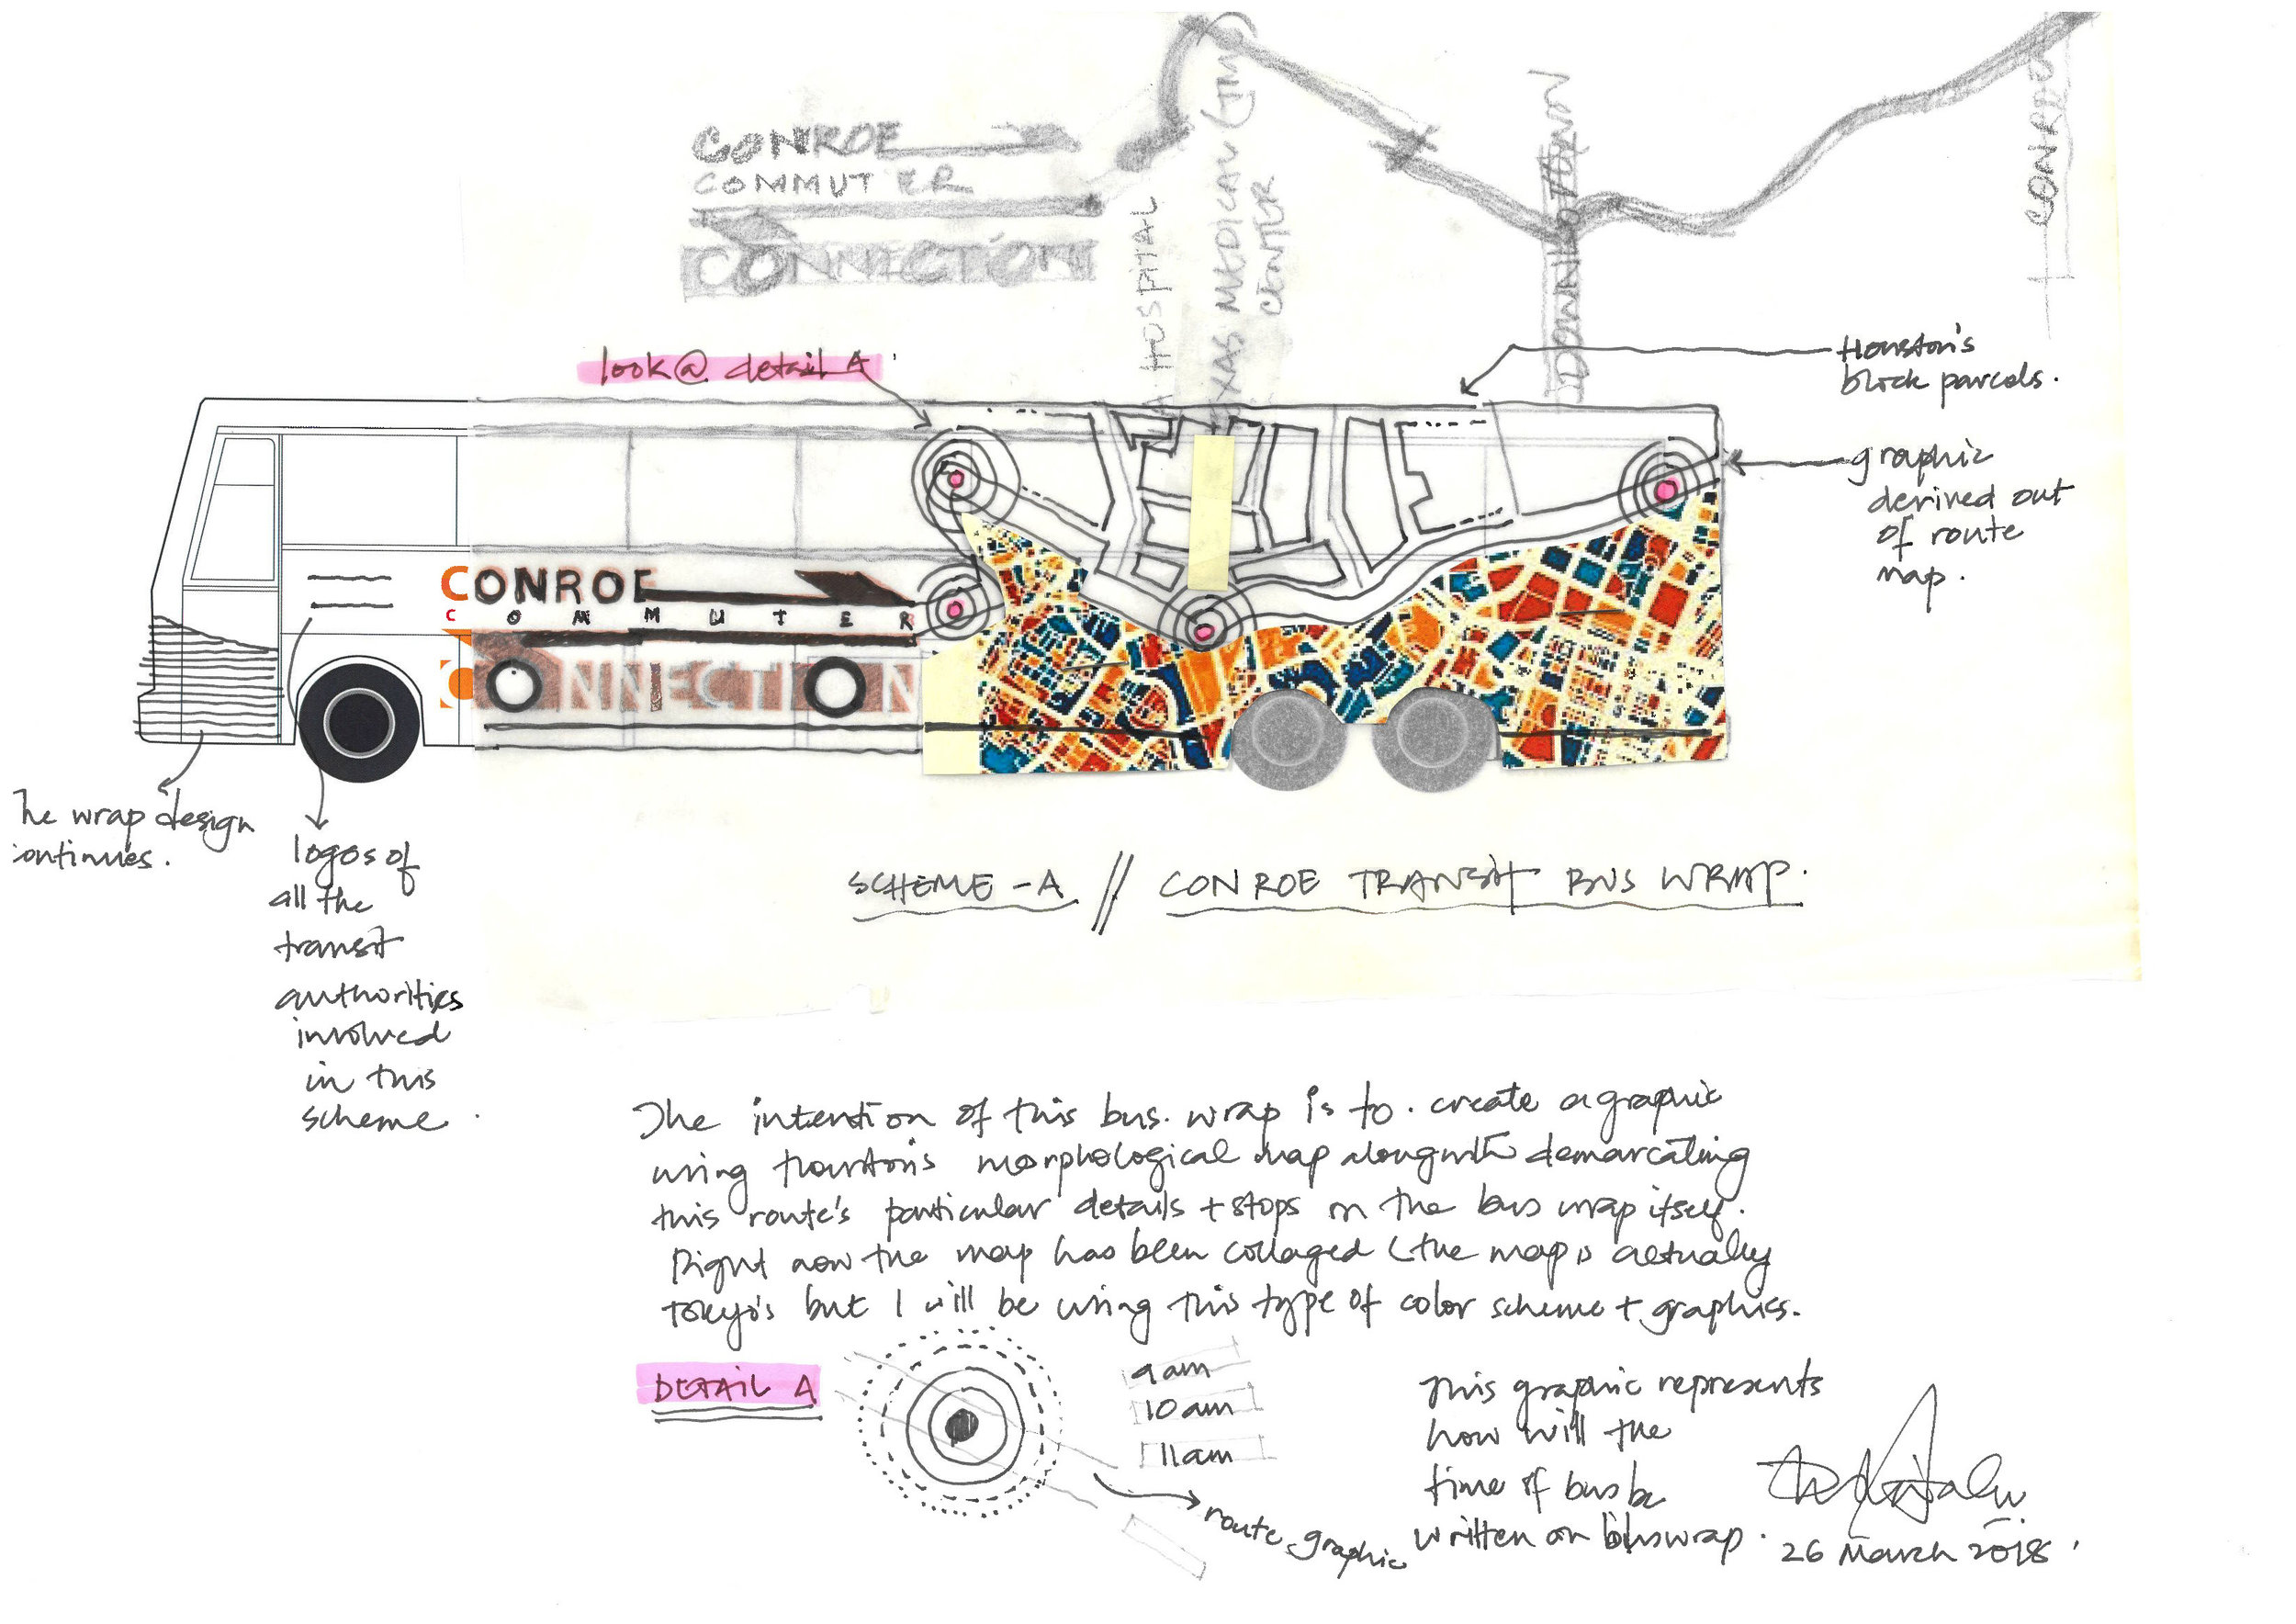 CONROE
COMMUTER
CONNECTION
A HOSPITAL
TEXAS MEDICAL (TMC)
CENTER
DOWNTOWN
CONROE
look@ detail A
Houston's
block parcels.
graphic
derived out
of route
map.
CONROE
COMMUTER
CONNECTION
The wrap design
continues.
logos of
all the
transit
authorities
involved
in this
scheme.
SCHEME-A // CONROE TRANSIT BUS WRAP.
The intention of this bus. wrap is to. create a graphic
using Houston's morphological map alongwith demarcating
this route's particular details + stops on the bus wrap itself.
Right now the map has been collaged (the map is actually
Tokyo's but I will be using this type of color scheme + graphics.
DETAIL A
9am
10am
11am
route graphic
This graphic represents
how will the
time of bus be
written on buswrap.
26 March 2018.